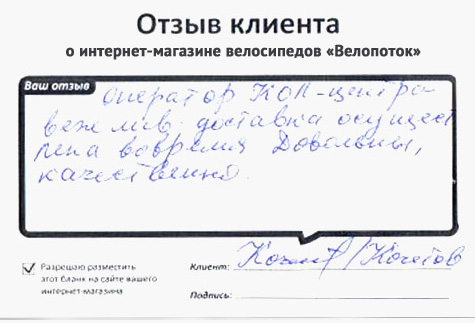 Отзыв клиента
о интернет-магазине велосипедов «Велопоток»
Ваш отзыв
оператор Кол-центра
вежлив. доставка осущест
лена вовремя. Довольны,
качественно.
Разрешаю разместить
этот бланк на сайте вашего
интернет-магазина
Клиент: Кочетов
Подпись: